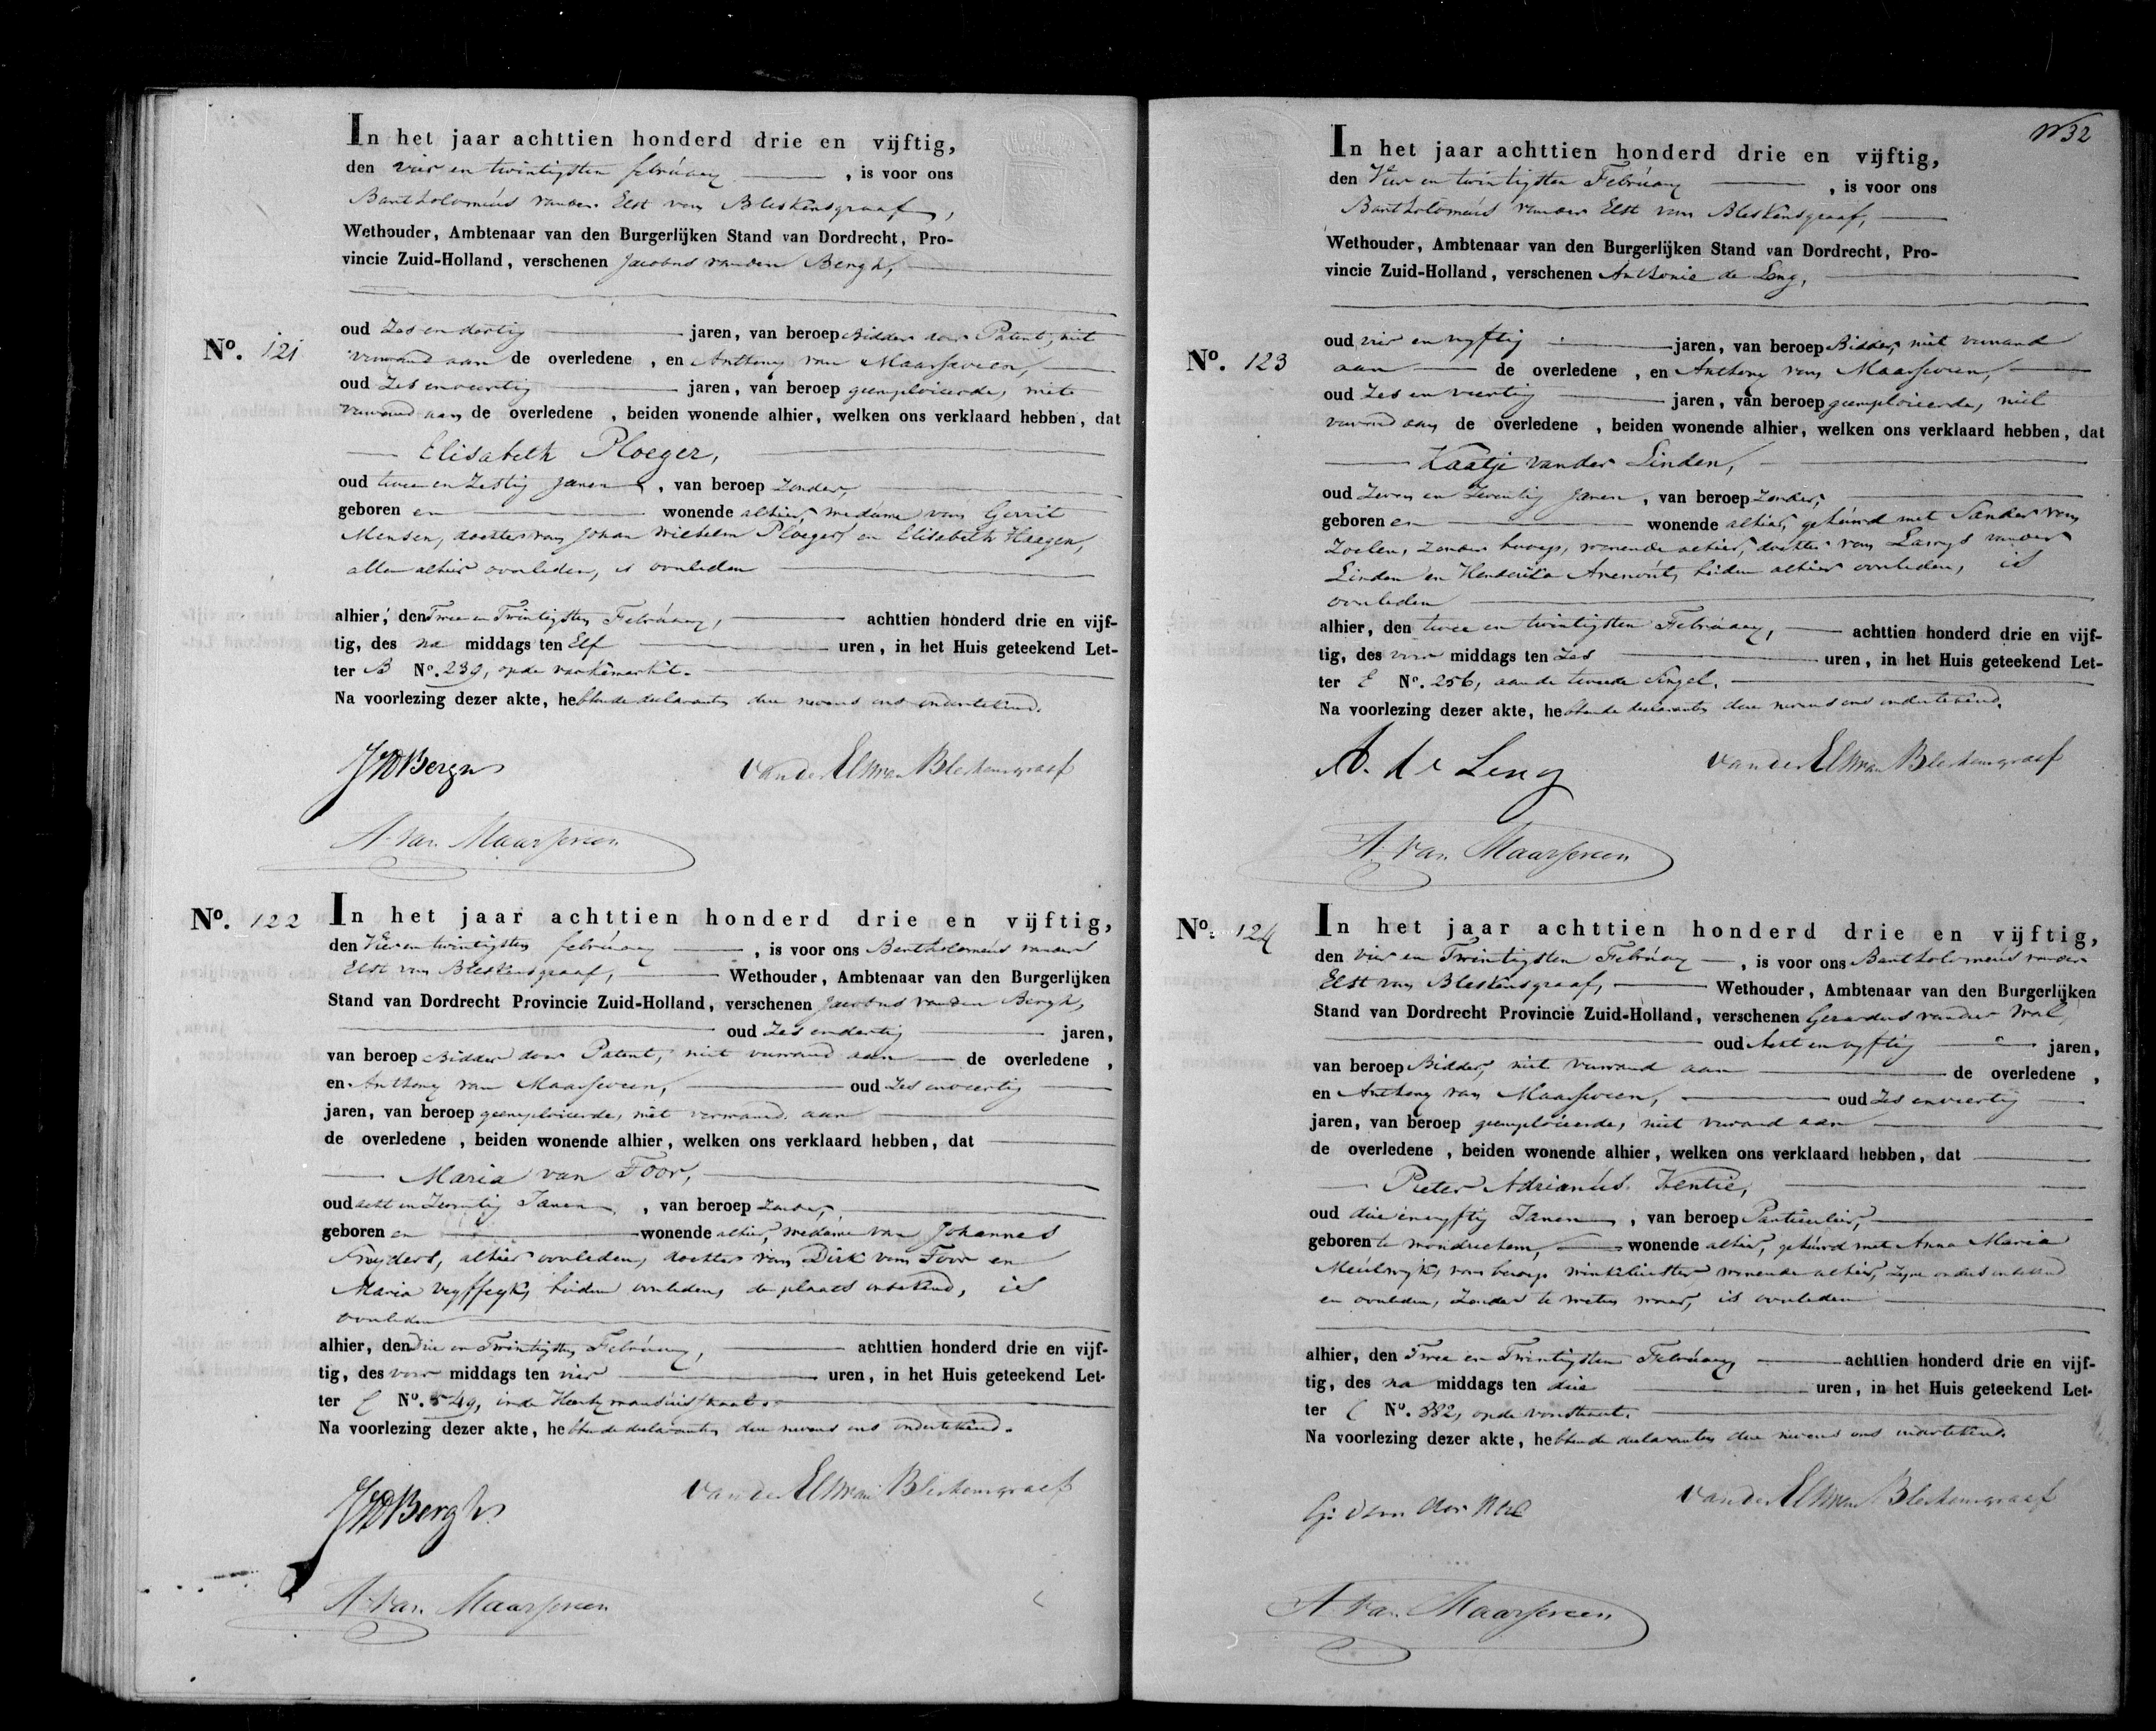 In het jaar achttien honderd drie en vijftig,
den vier en twintigsten februarij, is voor ons
Bartholomeus vander Elst van Bleskensgraaf,
Wethouder, Ambtenaar van den Burgerlijken Stand van Dordrecht, Pro-
vincie Zuid-Holland, verschenen Jacobus vanden Bergh,
No. 121
oud Zes en dertig jaren, van beroep Bidder door Patent, niet
verwand aan de overledene, en Anthony van Maarseveen,
oud Zes en veertig jaren, van beroep geemploieerde, niet
verwand aan de overledene, beiden wonende alhier, welken ons verklaard hebben, dat
Elisabeth Ploeger,
oud twee en Zestig Jaren, van beroep Zonder,
geboren en wonende alhier, weduwe van Gerrit
Mensen, dochter van Johan Wilhelm Ploeger en Elisabeth Haegen,
allen alhier overleden, is overleden
alhier, den Twee en Twintigsten Februarij, achttien honderd drie en vijf-
tig, des na middags ten Elf uren, in het Huis geteekend Let-
ter B No. 239, op de varkemarkt.
Na voorlezing dezer akte, hebben de declaranten deze nevens ons onderteekend.
JvdBergh
vander Elst van Bleskensgraaf
A. van Maarseveen
No. 122
In het jaar achttien honderd drie en vijftig,
den Vier en twintigsten februarij, is voor ons Bartholomeus vander
Elst van Bleskensgraaf, Wethouder, Ambtenaar van den Burgerlijken
Stand van Dordrecht Provincie Zuid-Holland, verschenen Jacobus vanden Bergh,
oud Zes en dertig jaren,
van beroep Bidder door Patent, niet verwand aan de overledene,
en Anthony van Maarseveen, oud Zes en veertig
jaren, van beroep geemploieerde, niet verwand aan
de overledene, beiden wonende alhier, welken ons verklaard hebben, dat
Maria van Toor,
oud acht en Zeventig Jaren, van beroep Zonder,
geboren en wonende alhier, weduwe van Johannes
Snyders, alhier overleden, dochter van Dirk van Toor en
Maria beiden overleden, de plaats onbekend, is
overleden
alhier, den Drie en Twintigsten Februarij, achttien honderd drie en vijf-
tig, des voor middags ten vier uren, in het Huis geteekend Let-
ter C No. 549, in de
Na voorlezing dezer akte, hebben de declaranten deze nevens ons onderteekend.
JvdBergh
vander Elst van Bleskensgraaf
A. van Maarseveen
32
In het jaar achttien honderd drie en vijftig,
den Vier en twintigsten Februarij, is voor ons
Bartholomeus vander Elst van Bleskensgraaf,
Wethouder, Ambtenaar van den Burgerlijken Stand van Dordrecht, Pro-
vincie Zuid-Holland, verschenen Anthonie de Leng,
No. 123
oud vier en vyftig jaren, van beroep Bidder, niet verwand
aan de overledene, en Anthony van Maarseveen,
oud Zes en veertig jaren, van beroep geemploieerde, niet
verwand aan de overledene, beiden wonende alhier, welken ons verklaard hebben, dat
Kaatje vander Linden,
oud Zeven en Zeventig Jaren, van beroep Zonder,
geboren en wonende alhier, gehuwd met Sander van
Zoelen, Zonder beroep, wonende alhier, dochter van vander
Linden en Hendrika beiden alhier overleden, is
overleden
alhier, den twee en twintigsten Februarij, achttien honderd drie en vijf-
tig, des voor middags ten Zes uren, in het Huis geteekend Let-
ter E No. 256, aan de tweede Singel.
Na voorlezing dezer akte, hebben de declaranten deze nevens ons onderteekend.
A. de Leng
vander Elst van Bleskensgraaf
A. van Maarseveen
No. 124
In het jaar achttien honderd drie en vijftig,
den vier en Twintigsten Februarij, is voor ons Bartholomeus vander
Elst van Bleskensgraaf, Wethouder, Ambtenaar van den Burgerlijken
Stand van Dordrecht Provincie Zuid-Holland, verschenen Gerardus vander Wal,
oud Acht en vyftig jaren,
van beroep Bidder, niet verwand aan de overledene,
en Anthony van Maarseveen, oud Zes en veertig
jaren, van beroep geemploieerde, niet verwand aan
de overledene, beiden wonende alhier, welken ons verklaard hebben, dat
Pieter Adrianus Kentie,
oud drie en vyftig Jaren, van beroep Particulier,
geboren te Woudrichem, wonende alhier, gehuwd met Anna Maria
Meulwyk, van beroep winkelierster wonende alhier, Zyne ouders onbekend
en overleden, Zonder te weten waar, is overleden
alhier, den Twee en Twintigsten Februarij achttien honderd drie en vijf-
tig, des na middags ten drie uren, in het Huis geteekend Let-
ter C No. 882, op de voorstraat.
Na voorlezing dezer akte, hebben de declaranten deze nevens ons onderteekend.
G: van der Wal
vander Elst van Bleskensgraaf
A. van Maarseveen